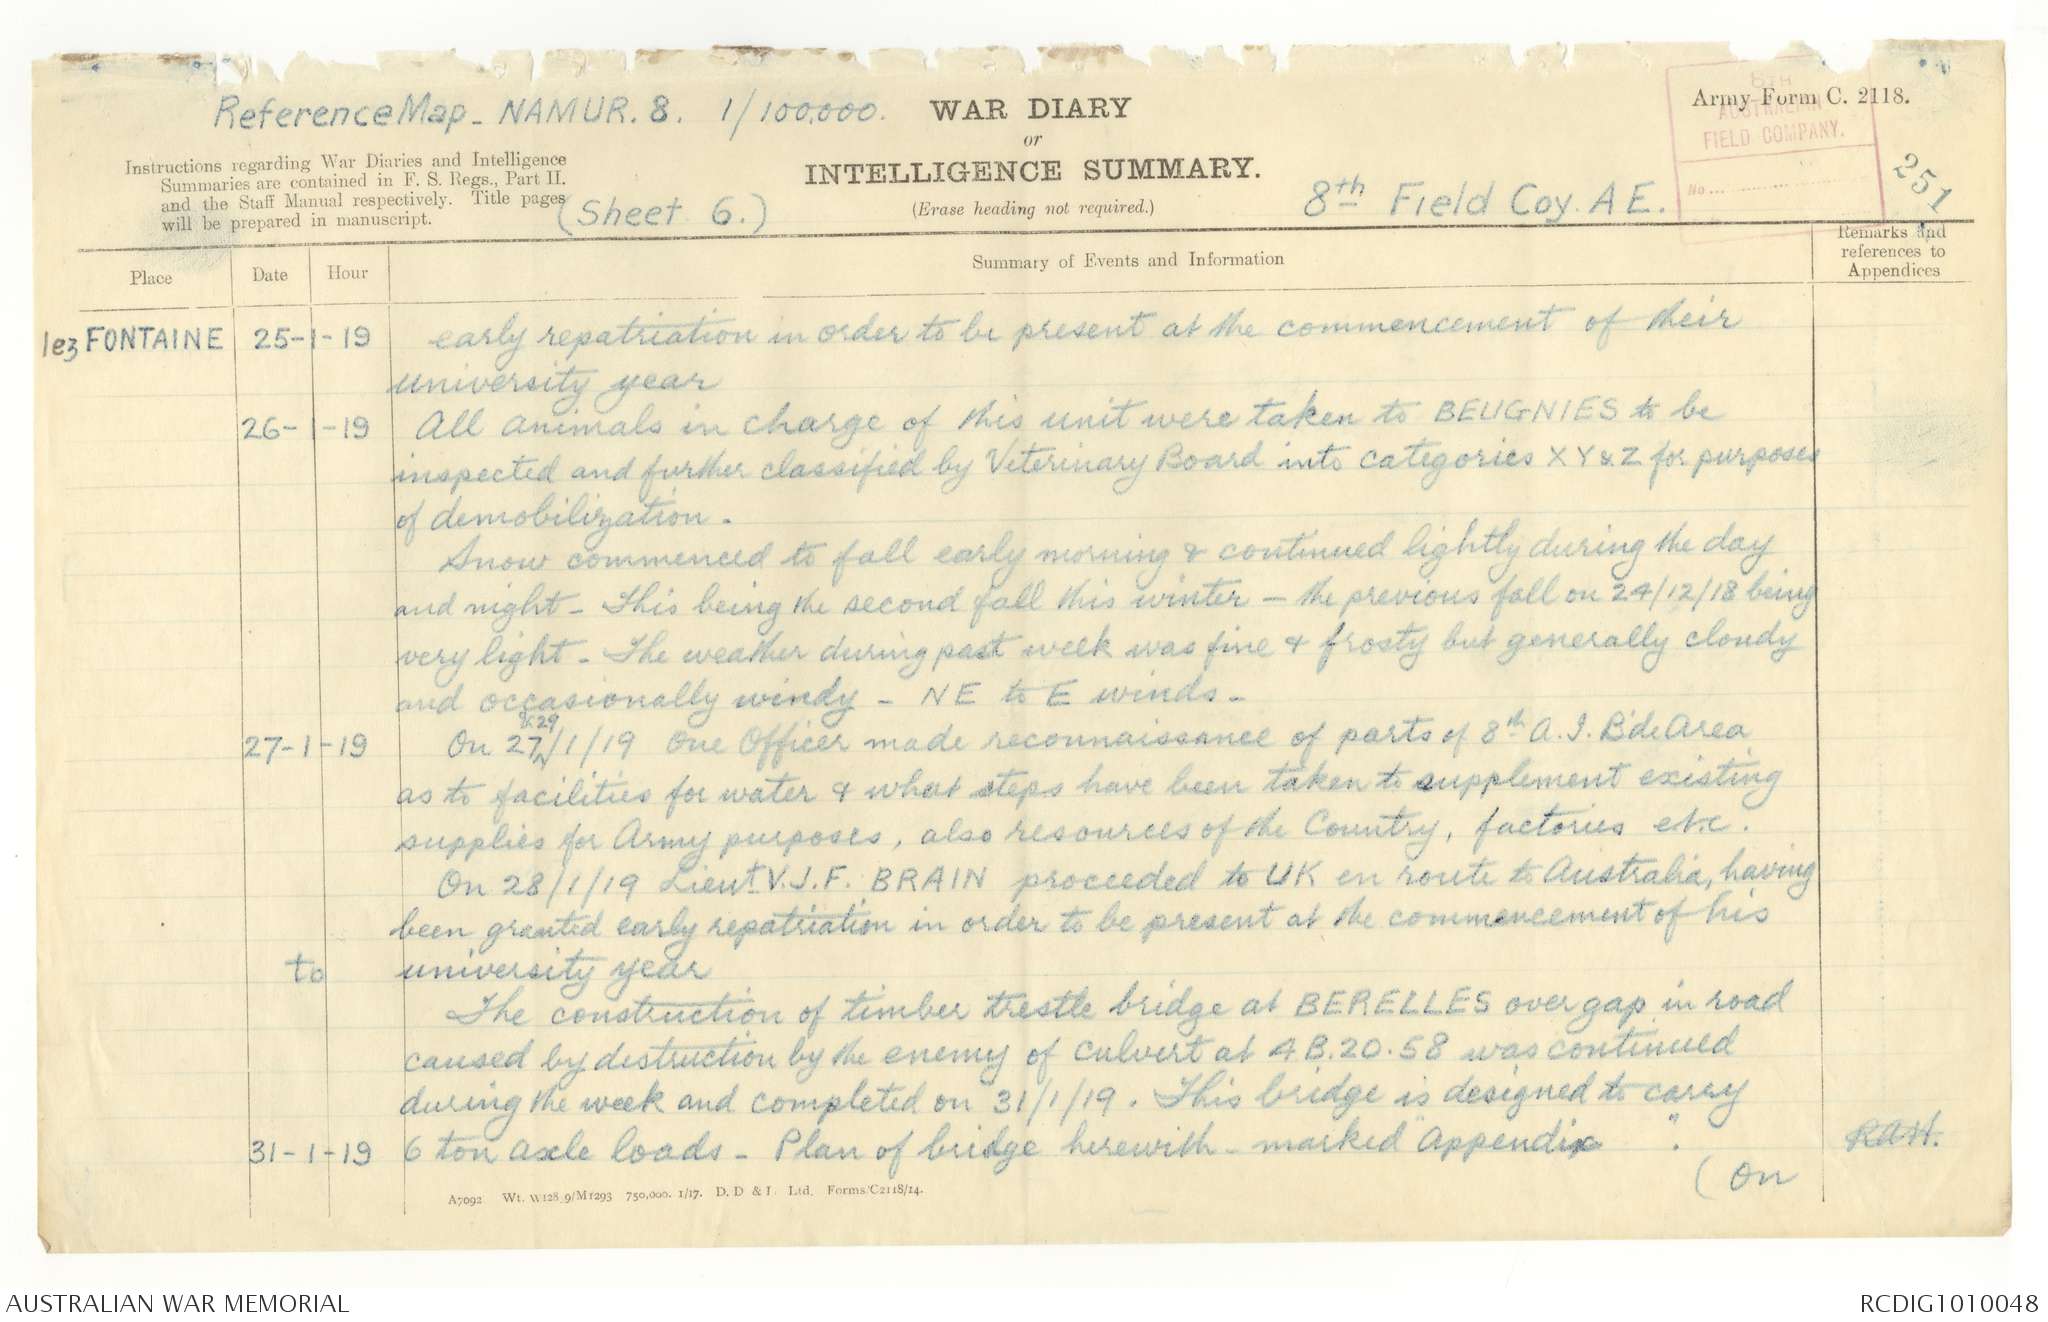 Reference Map_ NAMUR. 8. 1/100,000.
WAR DIARY
or
INTELLIGENCE SUMMARY.
(Erase heading not required.)
Army Form C. 2118.
8TH
AUSTRALIAN
FIELD COMPANY.
No...
251
Instructions regarding War Diaries and Intelligence
Summaries are contained in F. S. Regs., Part II.
and the Staff Manual respectively. Title pages
will be prepared in manuscript.
(Sheet 6.)
8th Field Coy. A E.
Place Date Hour Summary of Events and Information Remarks and references to Appendices
lez FONTAINE 25-1-19 early repatriation in order to be present at the commencement of their
university year
26-1-19 All animals in charge of this unit were taken to BEUGNIES to be
inspected and further classified by Veterinary Board into categories X Y & Z for purposes
of demobilization.
Snow commenced to fall early morning & continued lightly during the day
and night - This being the second fall this winter - the previous fall on 24/12/18 being
very light - The weather during past week was fine & frosty but generally cloudy
and occasionally windy - NE to E winds -
27-1-19 On 27 & 29/1/19 One Officer made reconnaissance of parts of 8th A. I. B'de Area
as to facilities for water & what steps have been taken to supplement existing
supplies for Army purposes, also resources of the Country, factories etc.
On 28/1/19 Lieut V.J.F. BRAIN proceeded to UK en route to Australia, having
been granted early repatriation in order to be present at the commencement of his
to university year
The construction of timber trestle bridge at BERELLES over gap in road
caused by destruction by the enemy of culvert at 4B.20.58 was continued
during the week and completed on 31/1/19. This bridge is designed to carry
31-1-19 6 ton axle loads - Plan of bridge herewith - marked "Appendix ". RAH.
(On
A7092 Wt. W128 9/M1293 750,000. 1/17. D. D & L Ltd. Forms/C2118/14.
AUSTRALIAN WAR MEMORIAL
RCDIG1010048